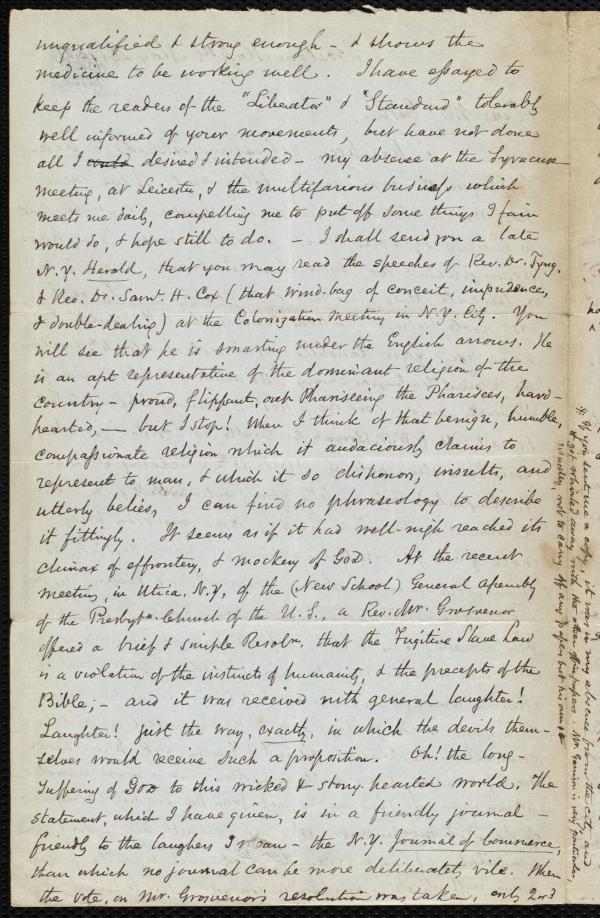 unqualified & strong enough - & shows the
medicine to be working well. I have essayed to
keep the readers of the "Liberator" & "Standard" tolerably
well informed of your movements, but have not done
all I could desired & intended - my absence at the Syracuse
meeting, at Leicester, & the multifarious business which
meets me daily, compelling me to put off some things I fain
would do, & hope still to do. - I shall send you a late
N.Y. Herald, that you may read the speeches of Rev. Dr. Tyng.
& Rev. Dr. Saml. H. Cox (that wind-bag of conceit, impudence,
& double-dealing) at the Colonization meeting in N.Y. City. You
will see that he is smarting under the English arrows. He
is an apt representative of the dominant religion of the
country - proud, flippant, out-Phariseeing the Pharisees, hard-
hearted, — but I stop! When I think of that benign, humble,
compassionate religion which it audaciously claims to
represent to man, & which it so dishonors, insults, and
utterly belies, I can find no phraseology to describe
it fittingly. It seems as if it had well-nigh reached its
climax of effrontery, & mockery of God. At the recent
meeting, in Utica, N.Y, of the (New School) General Assembly
of the Presbyn. Church of the U.S., a Rev. Mr. Grosvenor
offered a brief & simple Resoln. that the Fugitive Slave Law
is a violation of the instincts of humanity, & the precepts of the
Bible; - and it was received with general laughter!
Laughter! just the way, exactly, in which the devils them-
selves would receive such a proposition. Oh! the long-
suffering of God to this wicked & stony-hearted world. The
statement, which I have given, is in a friendly journal -
friendly to the laughers I mean - the N.Y. Journal of Commerce,
than which no journal can be more deliberately vile. When
the vote, on Mr. Grosvenor's resolution was taken, only 2 or 3
* If you sent me a copy, it was in my absence from the city, and
it got whirled away with the other office papers. Mr. Garrison is very particular,
usually, not to carry off any papers but his own